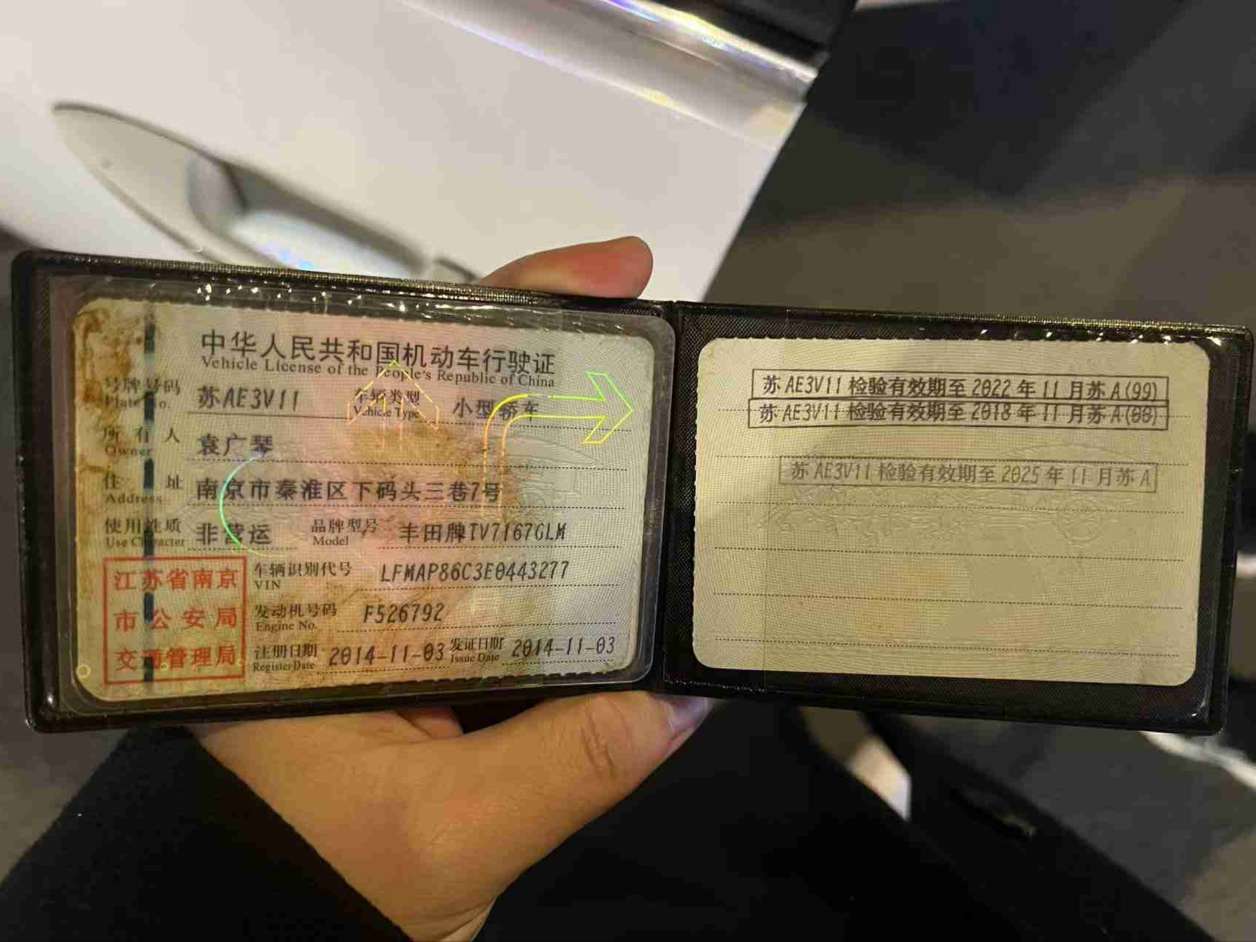 中华人民共和国机动车行驶证
Vehicle License of the People's Republic of China
号牌号码 苏AE3V11 车辆类型 小型轿车
Plate No. Vehicle Type
所有人 袁广琴
Owner
住址 南京市秦淮区下码头三巷7号
Address
使用性质 非营运 品牌型号 丰田牌TV7167GLM
Use Character Model
江苏省南京
市公安局
交通管理局
车辆识别代号 LFMAP86C3E0443277
VIN
发动机号码 F526792
Engine No.
注册日期 2014-11-03 发证日期 2014-11-03
Register Date Issue Date
苏AE3V11检验有效期至2022年11月苏A(99)
苏AE3V11检验有效期至2018年11月苏A(00)
苏AE3V11检验有效期至2025年11月苏A